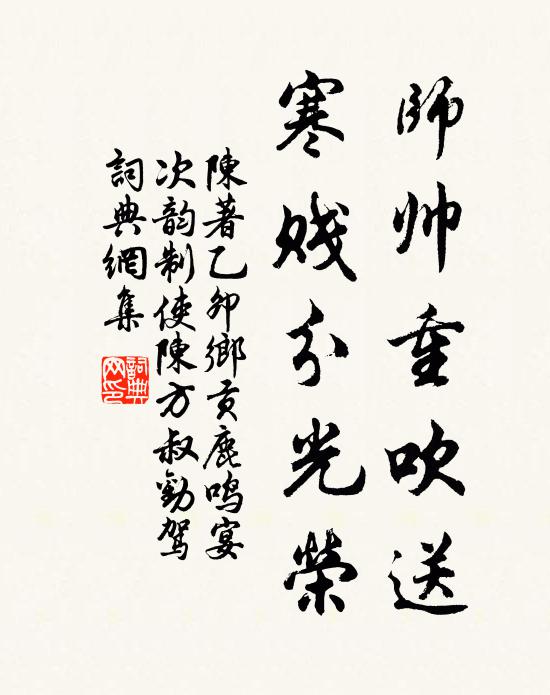 師帅重吹送
寒贱分光榮
陳著乙卯鄉貢鹿鸣宴
次韵制使陳方叔勸驾
詞典網集
詞典
网印